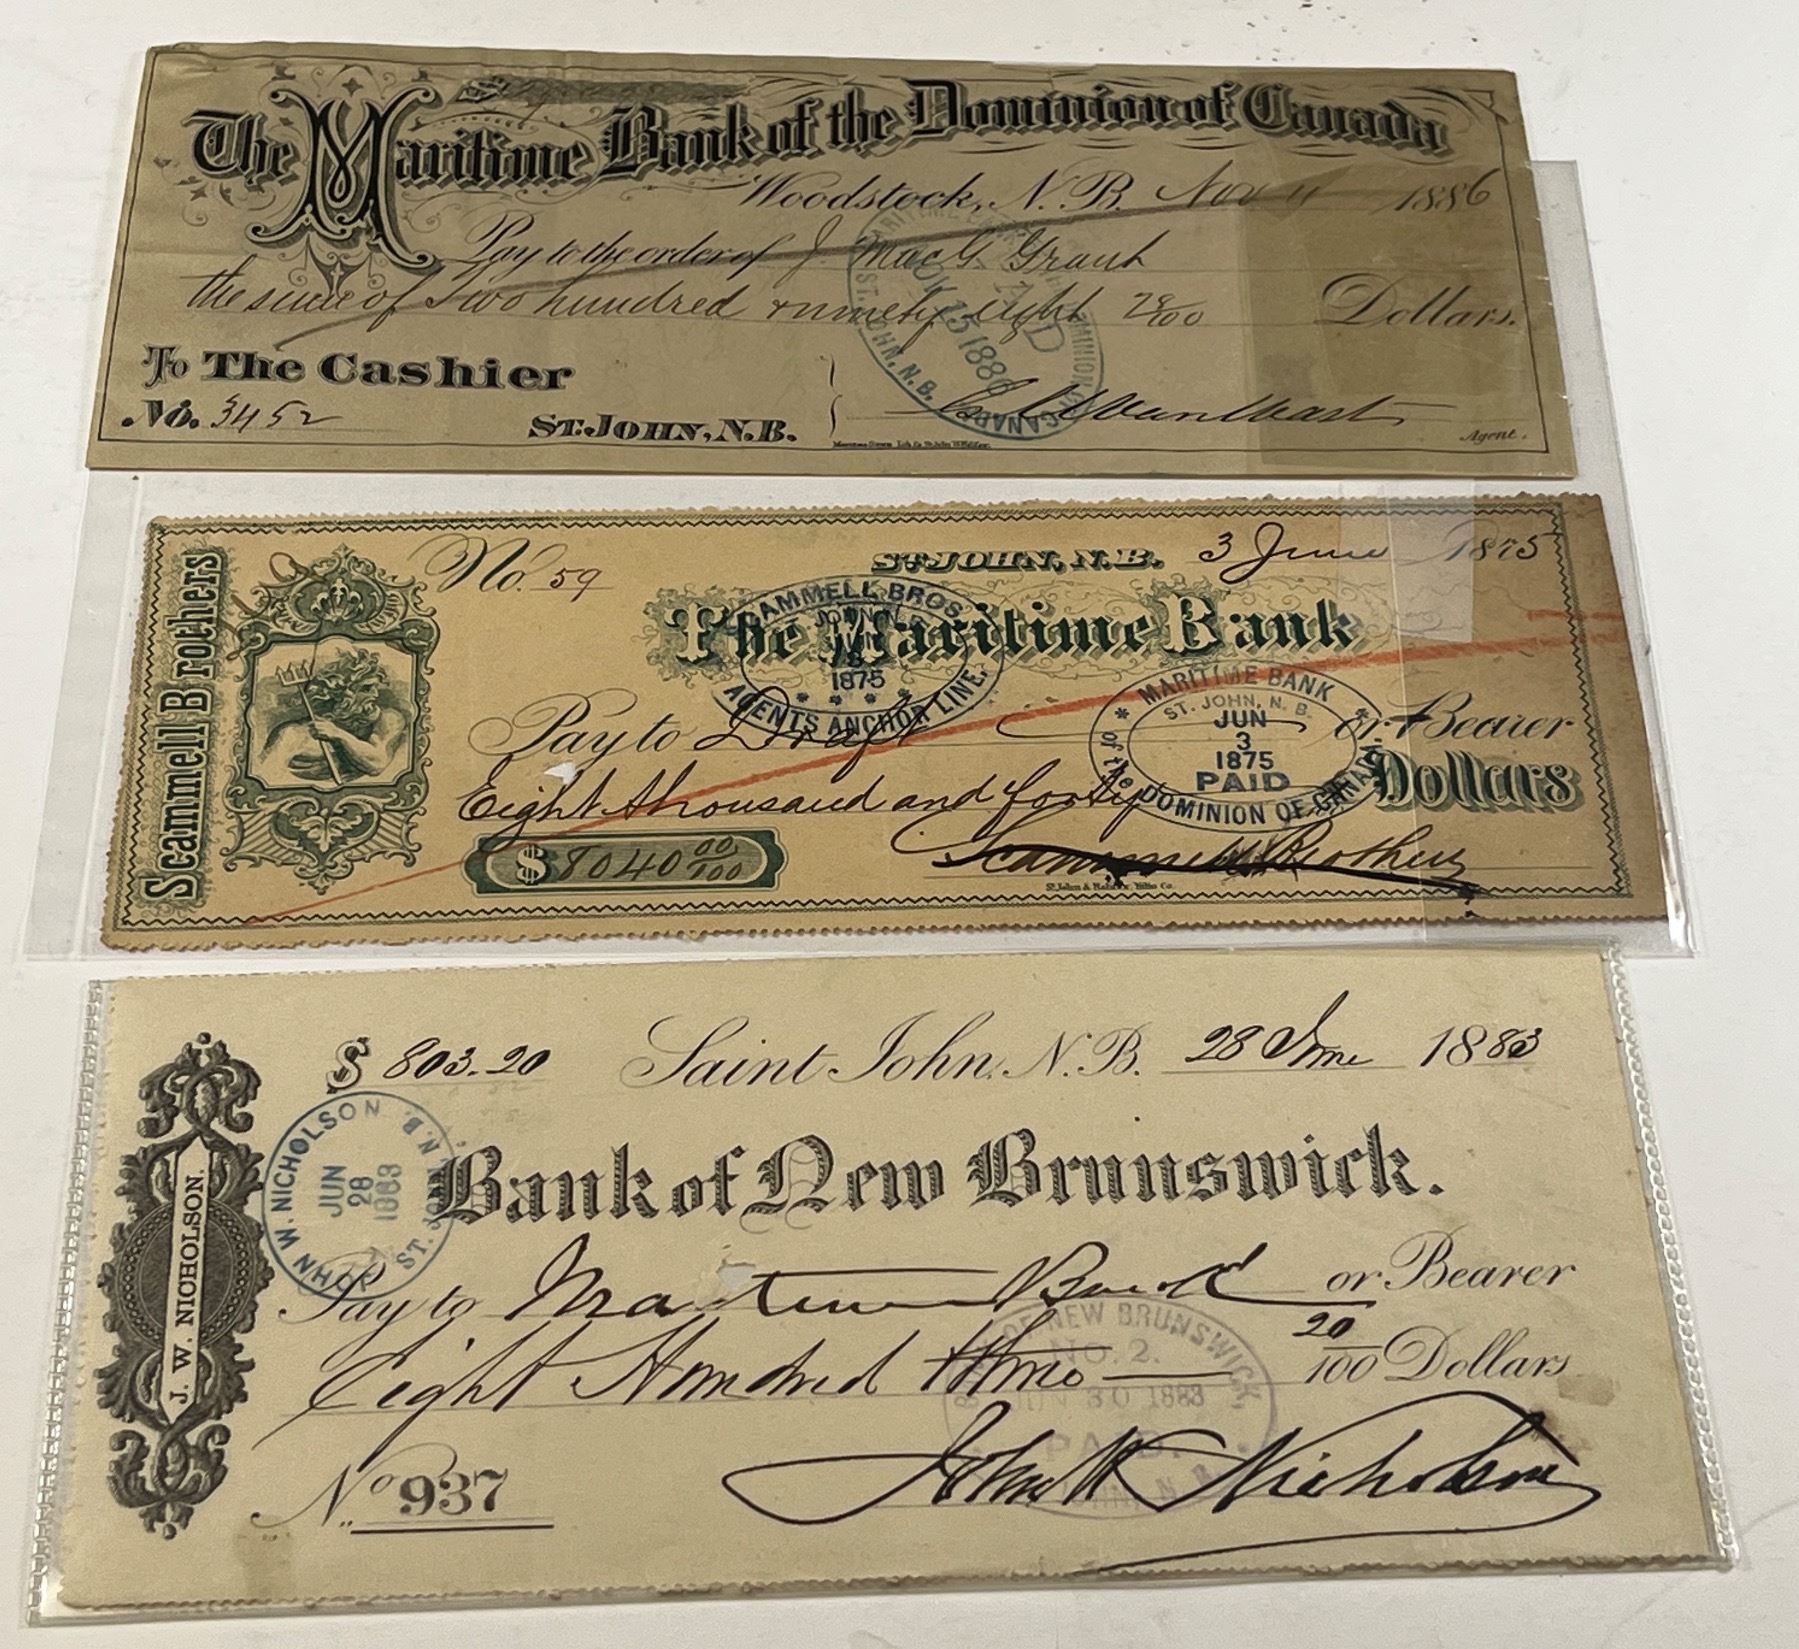 The Maritime Bank of the Dominion of Canada
Woodstock, N.B. Nov 11 1886
Pay to the order of J. MacG Grant
the sum of Two hundred & ninety eight 28/100 Dollars.
To The Cashier
No. 3452 ST. JOHN, N.B.
Agent.
MARITIME
DOMINION OF CANADA
NOV 15 188
ST. JOHN, N.B.
Scammell Brothers
No. 59 ST JOHN, N.B. 3 June 1875
The Maritime Bank
SCAMMELL BROS
JUN
3
1875
AGENTS ANCHOR LINE.
MARITIME BANK
ST. JOHN, N.B.
JUN
3
1875
PAID
of the DOMINION OF CANADA
Pay to Draft or Bearer
Eight thousand and forty Dollars
$ 8040 00/100 Scammell Brothers
J. W. NICHOLSON.
$ 803.20 Saint John, N.B. 28 June 1883
JOHN W. NICHOLSON
JUN
28
1883
ST. JOHN N.B.
Bank of New Brunswick.
Pay to or Bearer
Eight Hundred three 20/100 Dollars
BANK OF NEW BRUNSWICK,
NO. 2.
JUN 30 1883
PAID
No 937 John W Nicholson